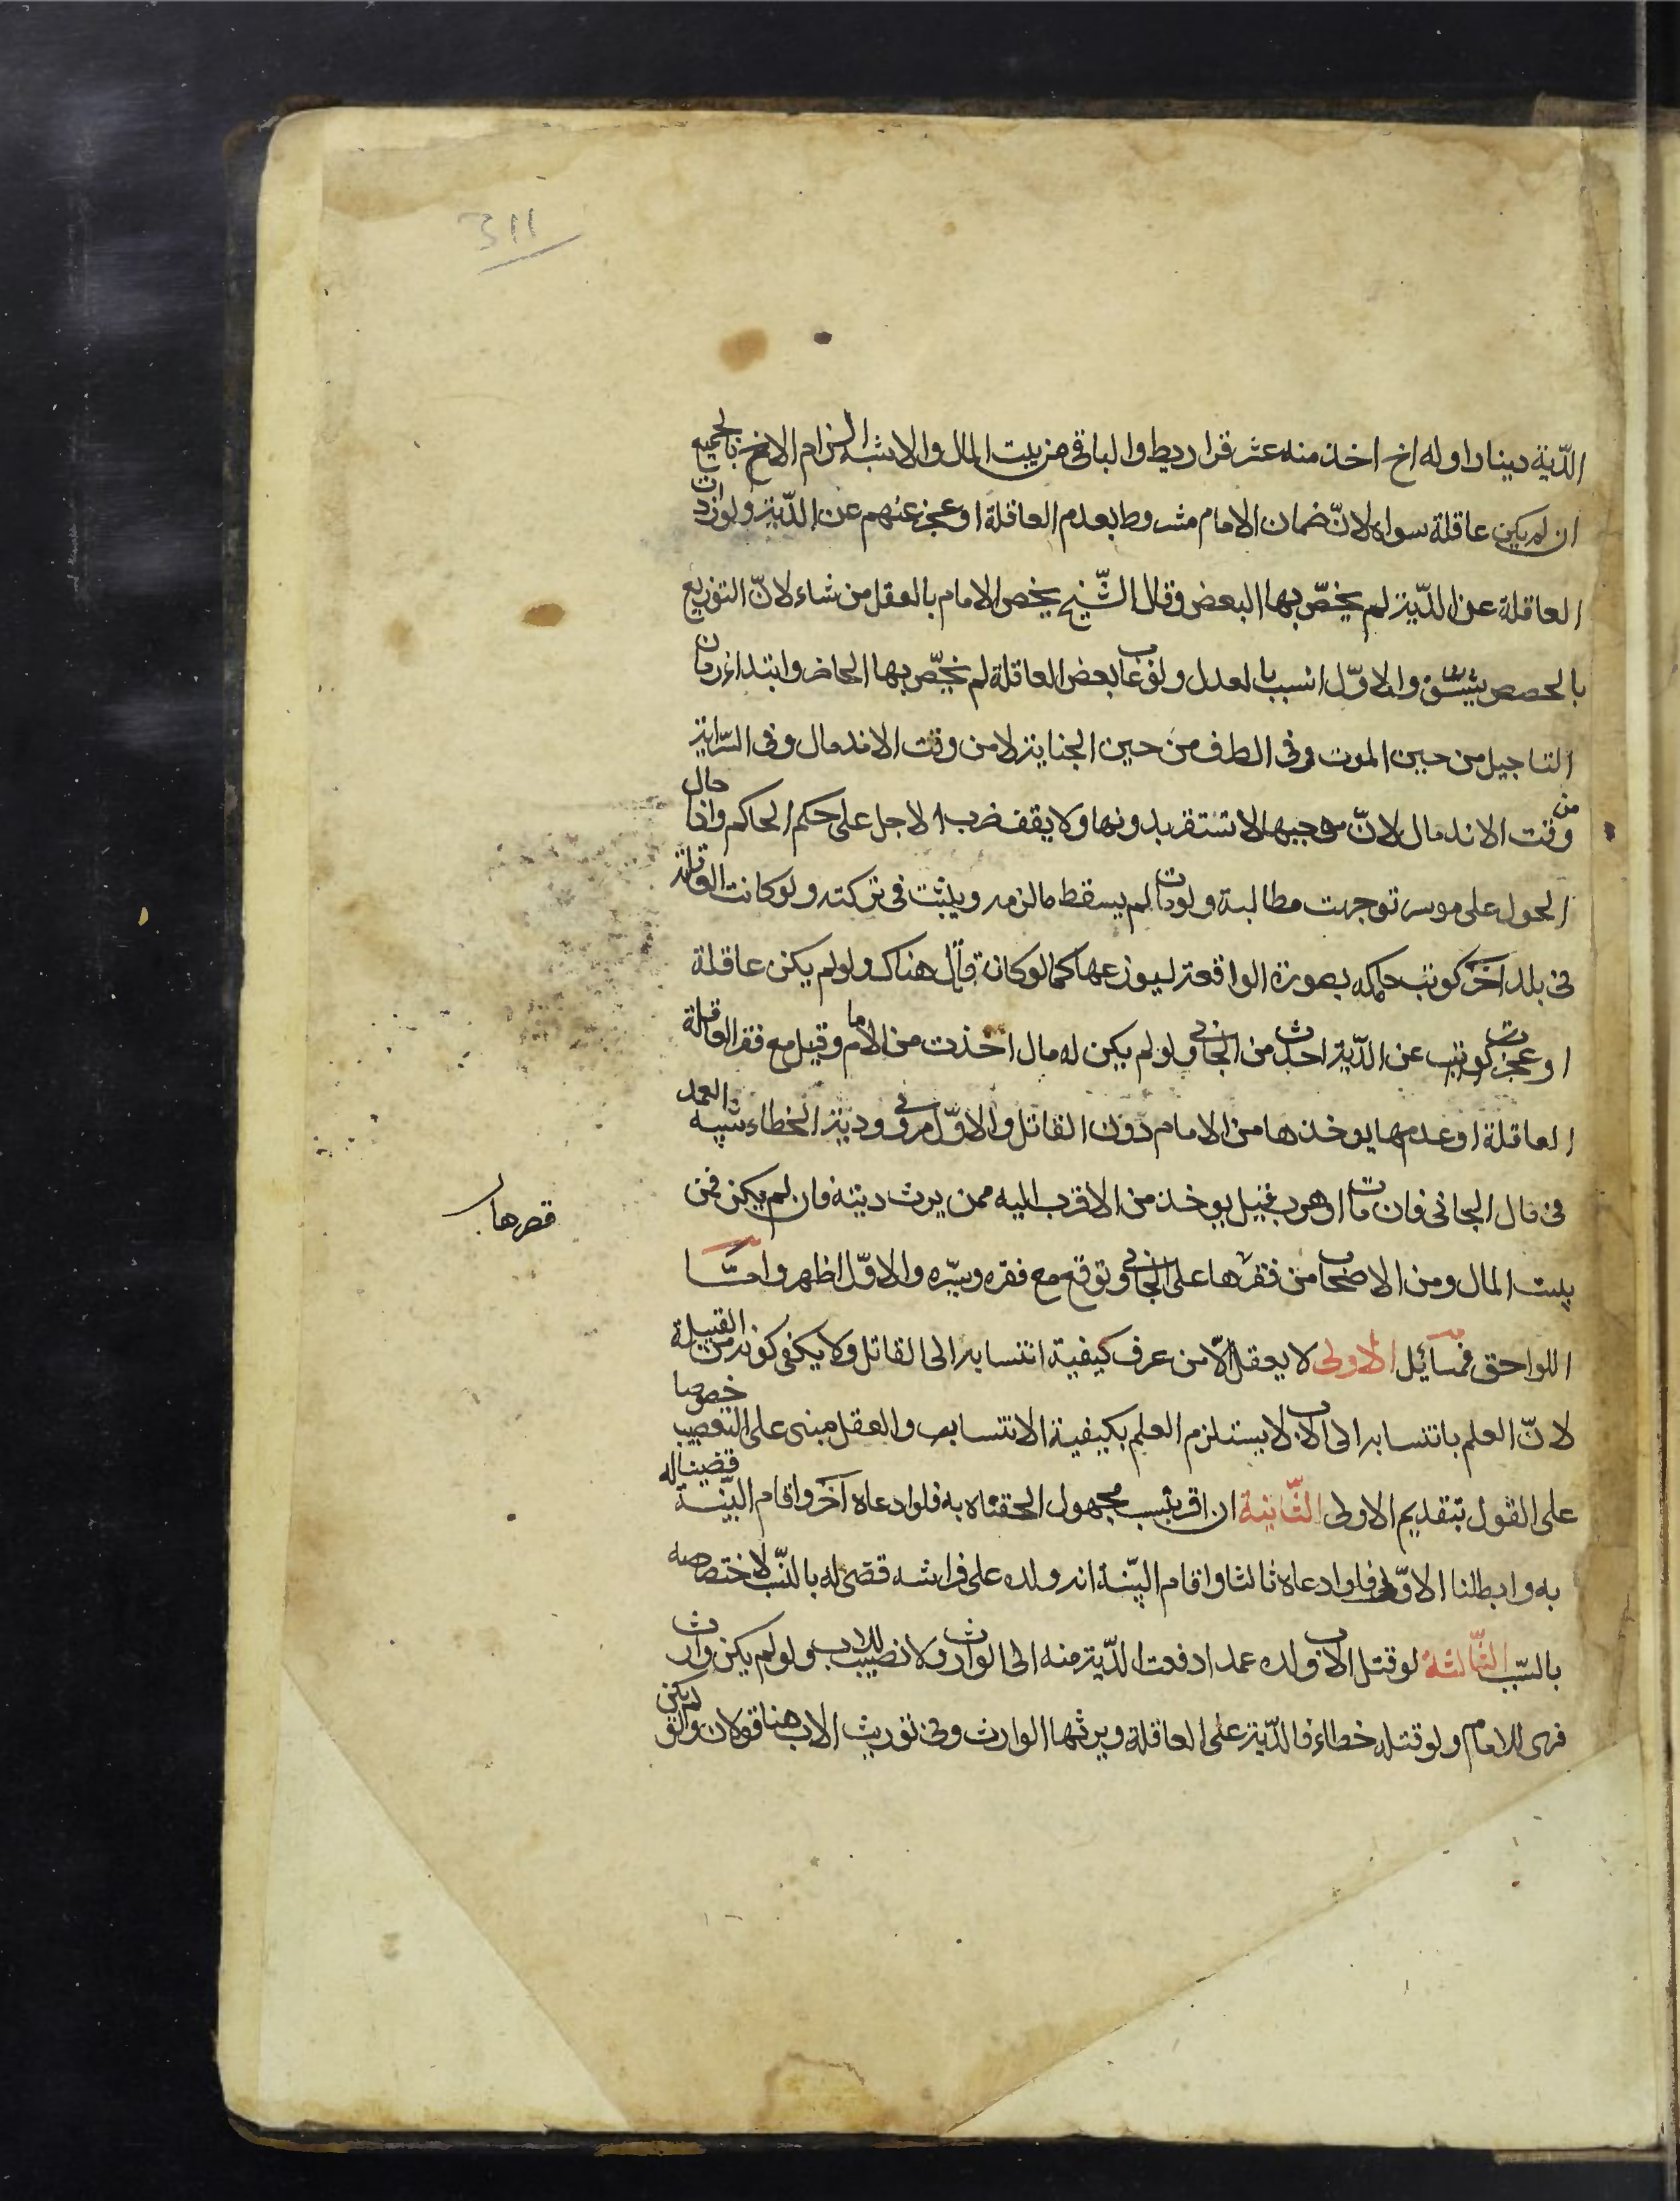 311
الدّية دينارا وله اخ اخذ منه عشر قراريط والباقي من بيت المال والاشبه الزام الاخ بالجميع
ان لم يكن عاقلة سواه لانّ ضمان الامام مشروط بعدم العاقلة او عجزهم عن الدّية ولو زادت
العاقلة عن الدّية لم يخصّ بها البعض وقال الشّيخ يخص الامام بالعقل من شاء لانّ التوزيع
بالحصص يشقّ والاوّل انسب بالعدل ولو غاب بعض العاقلة لم يخصّ بها الحاضر وابتداء زمان
التاجيل من حين الموت وفى الطرف من حين الجناية لا من وقت الاندمال وفى السّراية
من وقت الاندمال لانّ موجبها لا تستقر بدونها ولا يقف ضرب الاجل على حكم الحاكم واذا حال
الحول على موسر توجهت مطالبة ولو مات لم يسقط ما لزمه ويثبت فى تركته ولو كانت العاقلة
فى بلد اخر كوتب حاكمه بصورة الواقعة ليوزعها كما لو كان قاتل هناك ولو لم يكن عاقلة
او عجزت كوتب عن الدّية اخذت من الجاني ولو لم يكن له مال اخذت من الامام وقيل مع فقر العاقلة
العاقلة او عدمها يوخذها من الامام دون القاتل والاوّل مروي ودية الخطاء شبيه العمد
فى مال الجانى فان مات او هرب قيل يوخذ من الاقرب اليه ممن يرث ديته فان لم يكن فمن
بيت المال ومن الاصحاب من قصرها على الجاني وتوقع مع فقره يسره والاوّل اظهر وامّا
قصرها
اللواحق فمسائل الاولى لا يعقل الّا من عرف كيفية انتسابه الى القاتل ولا يكفى كونه من القبيلة
لانّ العلم بانتسابه الى الاب لا يستلزم العلم بكيفية الانتساب والعقل مبنى على التعصيب خصوصا
على القول بتقديم الاولى الثّانية ان اقر بنسب مجهول الحقناه به فلو ادعاه آخر واقام البيّنة قضينا له
به وابطلنا الاوّل فلو ادعاه ثالثا واقام البيّنة انه ولده على فراشه قضى له بالنّسب لاختصاصه
بالسّبب الثّالثة لو قتل الاب ولده عمدا دفعت الدّية منه الى الوارث ولا نصيب للاب ولو لم يكن وارث
فهى للامام ولو قتله خطاء فالدّية على العاقلة ويرثها الوارث وفى توريث الاب هنا قولان ولو لم يكن